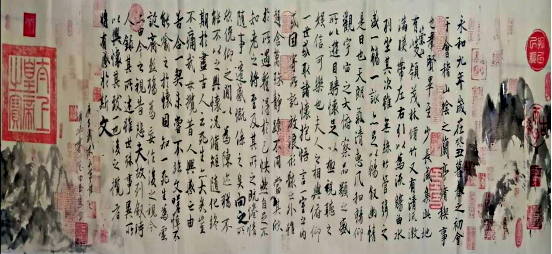 永和九年歲在癸丑暮春之初會
于會稽山陰之蘭亭脩禊事
也羣賢畢至少長咸集此地
有崇山峻領茂林脩竹又有清流激
湍暎帶左右引以為流觴曲水
列坐其次雖無絲竹管弦之
盛一觴一詠亦足以暢敘幽情
是日也天朗氣清惠風和暢仰
觀宇宙之大俯察品類之盛
所以遊目騁懷足以極視聽之
娛信可樂也夫人之相與俯仰
一世或取諸懷抱悟言一室之內
或因寄所託放浪形骸之外雖
趣舍萬殊靜躁不同當其欣
於所遇蹔得於己快然自足不
知老之將至及其所之既惓情
隨事遷感慨係之矣向之所欣
俛仰之間以為陳迹猶不
能不以之興懷況脩短隨化終
期於盡古人云死生亦大矣豈
不痛哉每攬昔人興感之由
若合一契未嘗不臨文嗟悼不
能喻之於懷固知一死生為虛
誕齊彭殤為妄作後之視今
亦由今之視昔悲夫故列敘時
人錄其所述雖世殊事異所
以興懷其致一也後之攬者
亦將有感於斯文